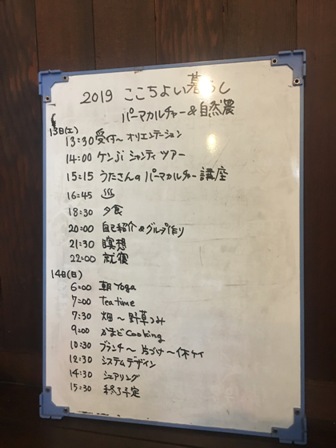 2019 ここちよい暮らし
パーマカルチャー&自然農
13日(土)
13:30 受付〜オリエンテーション
14:00 ケンジ シャンティ ツアー
15:15 うたさんの パーマカルチャー 講座
16:45 ♨
18:30 夕食
20:00 自己紹介&グループ作り
21:30 瞑想
22:00 就寝
14日(日)
6:00 朝Yoga
7:00 Tea time
7:30 畑〜野草つみ
9:00 かまどCooking
10:30 ブランチ〜片づけ〜休ケイ
12:30 システムデザイン
14:30 シェアリング
15:30 終了予定